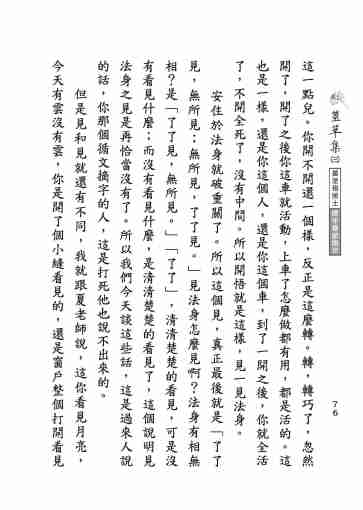 這一點兒。你開不開還一個樣，反正是這麼轉。轉，轉巧了，忽然
開了，開了之後你這車就活動，上車了怎麼做都有用，都是活的。這
也是一樣，還是你這個人，還是你這個車，到了一開之後，你就全活
了，不開全死了，沒有中間。所以開悟就是這樣，見一見法身。
安住於法身就破重關了。所以這個見，真正最後就是「了了
見，無所見；無所見，了了見。」見法身怎麼見啊？法身有相無
相？是「了了見，無所見。」「了了」，清清楚楚的看見，可是沒
有看見什麼；而沒有看見什麼，是清清楚楚的看見了，這個說明見
法身之見是再恰當沒有了。所以我們今天談這些話，這是過來人說
的話，你那個循文摘字的人，這是打死他也說不出來的。
但是見和見就還有不同，我就跟夏老師說，這你看見月亮，
今天有雲沒有雲，你是開了個小縫看見的，還是窗戶整個打開看見
蕞草集㈢
76